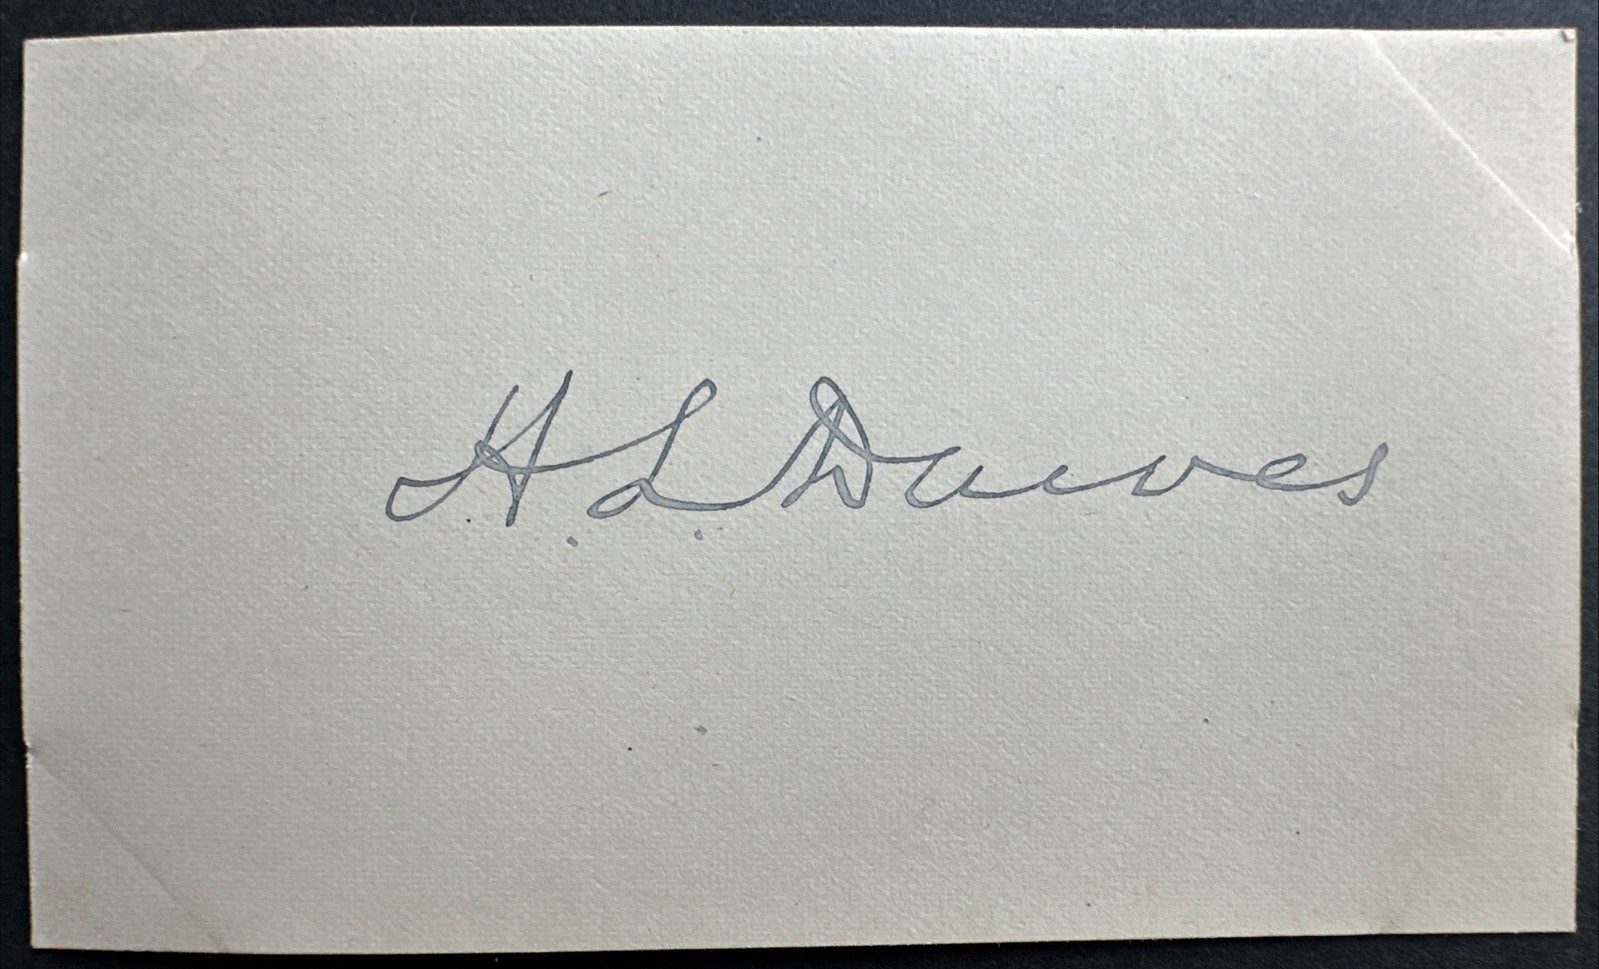 H. L. Dawes